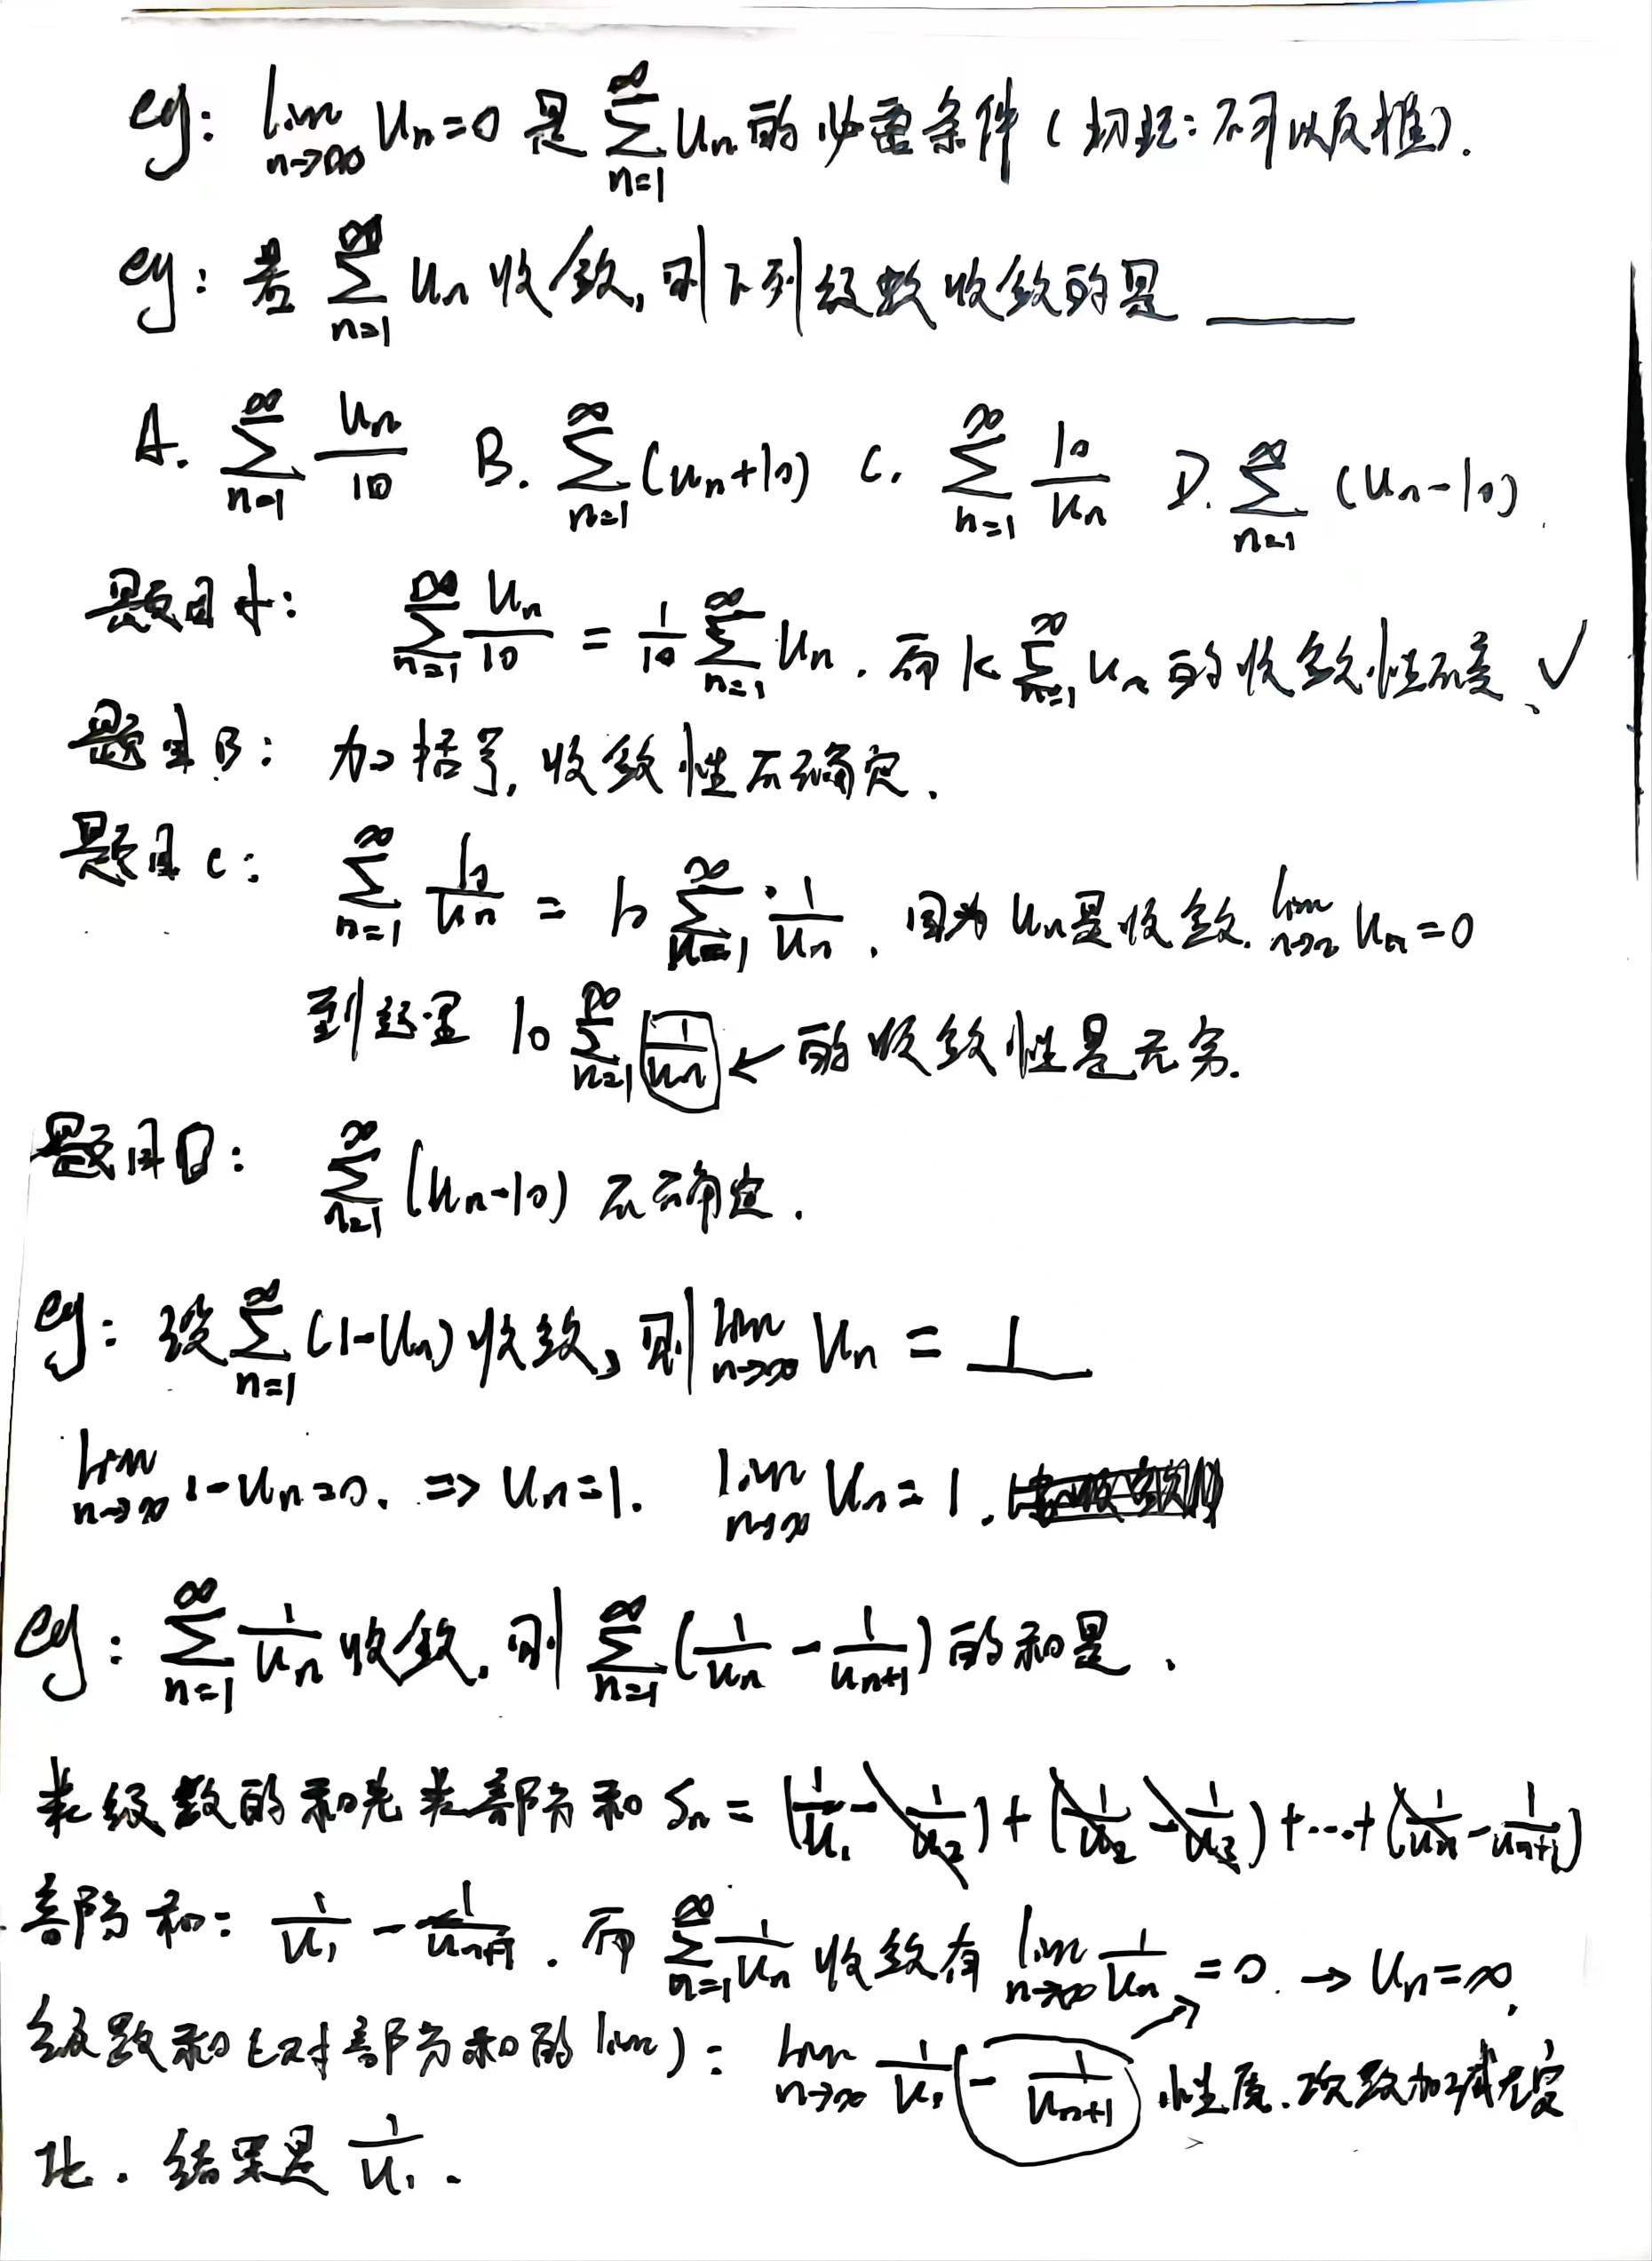 eg: lim n→∞ Un=0 是 ∞∑n=1 Un 的必要条件 (切记: 不可以反推).
eg: 若 ∞∑n=1 Un 收敛, 则下列级数收敛的是 ____
A. ∞∑n=1 Un/10 B. ∞∑n=1 (Un+10) C. ∞∑n=1 10/Un D. ∞∑n=1 (Un-10).
题目A: ∞∑n=1 Un/10 = 1/10 ∞∑n=1 Un. 而 k ∞∑n=1 Un 的收敛性不变、✓
题目B: 加括号, 收敛性不确定.
题目C: ∞∑n=1 10/Un = 10 ∞∑n=1 · 1/Un. 因为 Un是收敛. lim n→∞ Un=0
到这里 10 ∞∑n=1 1/Un ← 的收敛性是无穷.
题目D: ∞∑n=1 (Un-10) 不确定.
eg: 设 ∞∑n=1 (1-Un) 收敛, 则 lim n→∞ Un = 1
lim n→∞ 1-Un=0. => Un=1. lim n→∞ Un=1.
eg: ∞∑n=1 1/Un 收敛. 则 ∞∑n=1 (1/Un - 1/Un+1) 的和是.
求级数的和先求部分和 Sn = (1/U1 - 1/U2) + (1/U2 - 1/U3) +...+ (1/Un - 1/Un+1)
部分和: 1/U1 - 1/Un+1. 而 ∞∑n=1 1/Un 收敛有 lim n→∞ 1/Un = 0. → Un=∞.
级数和 (对部分和的lim): lim n→∞ 1/U1 - 1/Un+1 性质. 加减
. 结果是 1/U1.